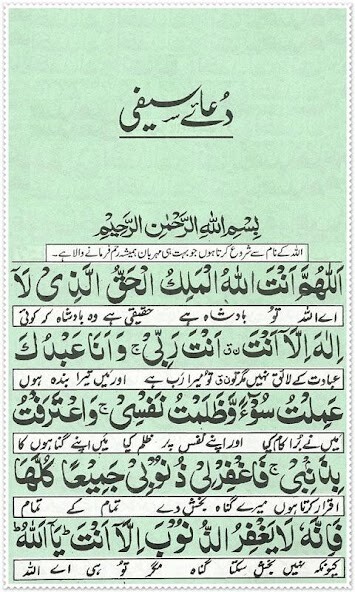 دُعائے سیفی
بِسْمِ اللهِ الرَّحْمٰنِ الرَّحِيْمِ
اللہ کے نام سے شروع کرتا ہوں جو بہت ہی مہربان ہمیشہ رحم فرمانے والا ہے۔
اَللّٰهُمَّ اَنْتَ اللهُ الْمَلِكُ الْحَقُّ الَّذِىْ لَآ
اے اللہ تُو بادشاہ ہے حقیقی ہے وہ بادشاہ کہ کوئی
اِلٰهَ اِلَّا اَنْتَ اَنْتَ رَبِّىْ ج وَ اَنَا عَبْدُكَ
عبادت کے لائق نہیں مگر تو تُو میرا رب ہے اور میں تیرا بندہ ہوں
عَمِلْتُ سُوْٓءً وَّظَلَمْتُ نَفْسِىْ ج وَاعْتَرَفْتُ
میں نے بُرا کام کیا اور اپنے نفس پر ظلم کیا میں اپنے گناہوں کا
بِذَنْبِىْ ج فَاغْفِرْلِىْ ذُنُوْبِىْ جَمِيْعًا كُلَّهَا
اقرار کرتا ہوں میرے گناہ بخش دے تمام کے تمام
فَاِنَّهٗ لَا يَغْفِرُ الذُّنُوْبَ اِلَّا اَنْتَ ط يَآ اَللهُ ط
کیونکہ نہیں بخش سکتا گناہ مگر تُو ہی اے اللہ